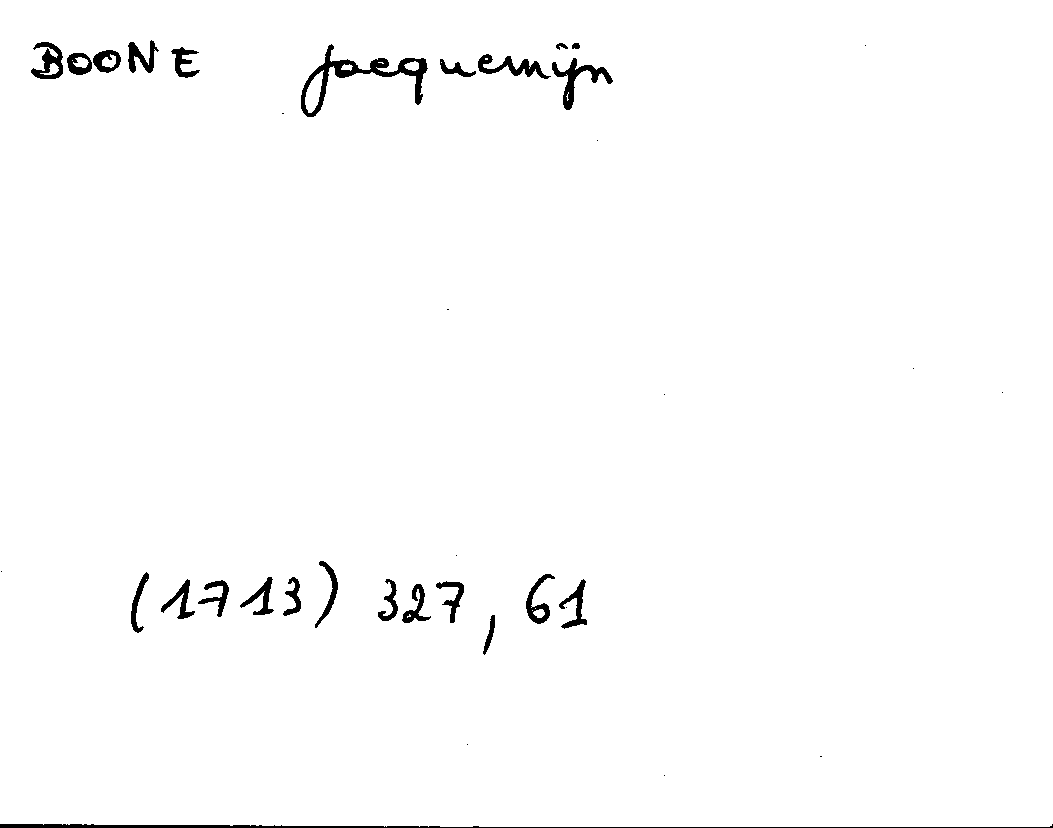 BOONE Jacquemijn
(1713) 327, 61